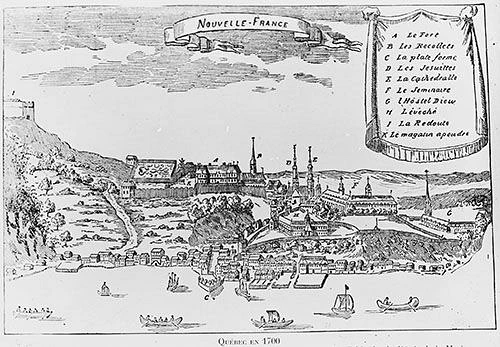 NOUVELLE-FRANCE
A Le Fort
B Les Recollecs
C La plate forme
D Les Jesuittes
E La Cathedralle
F Le Seminaire
G l'Hostel Dieu
H L'évéché
I La Redoute
K Le magasin a poudre
QUÉBEC EN 1700